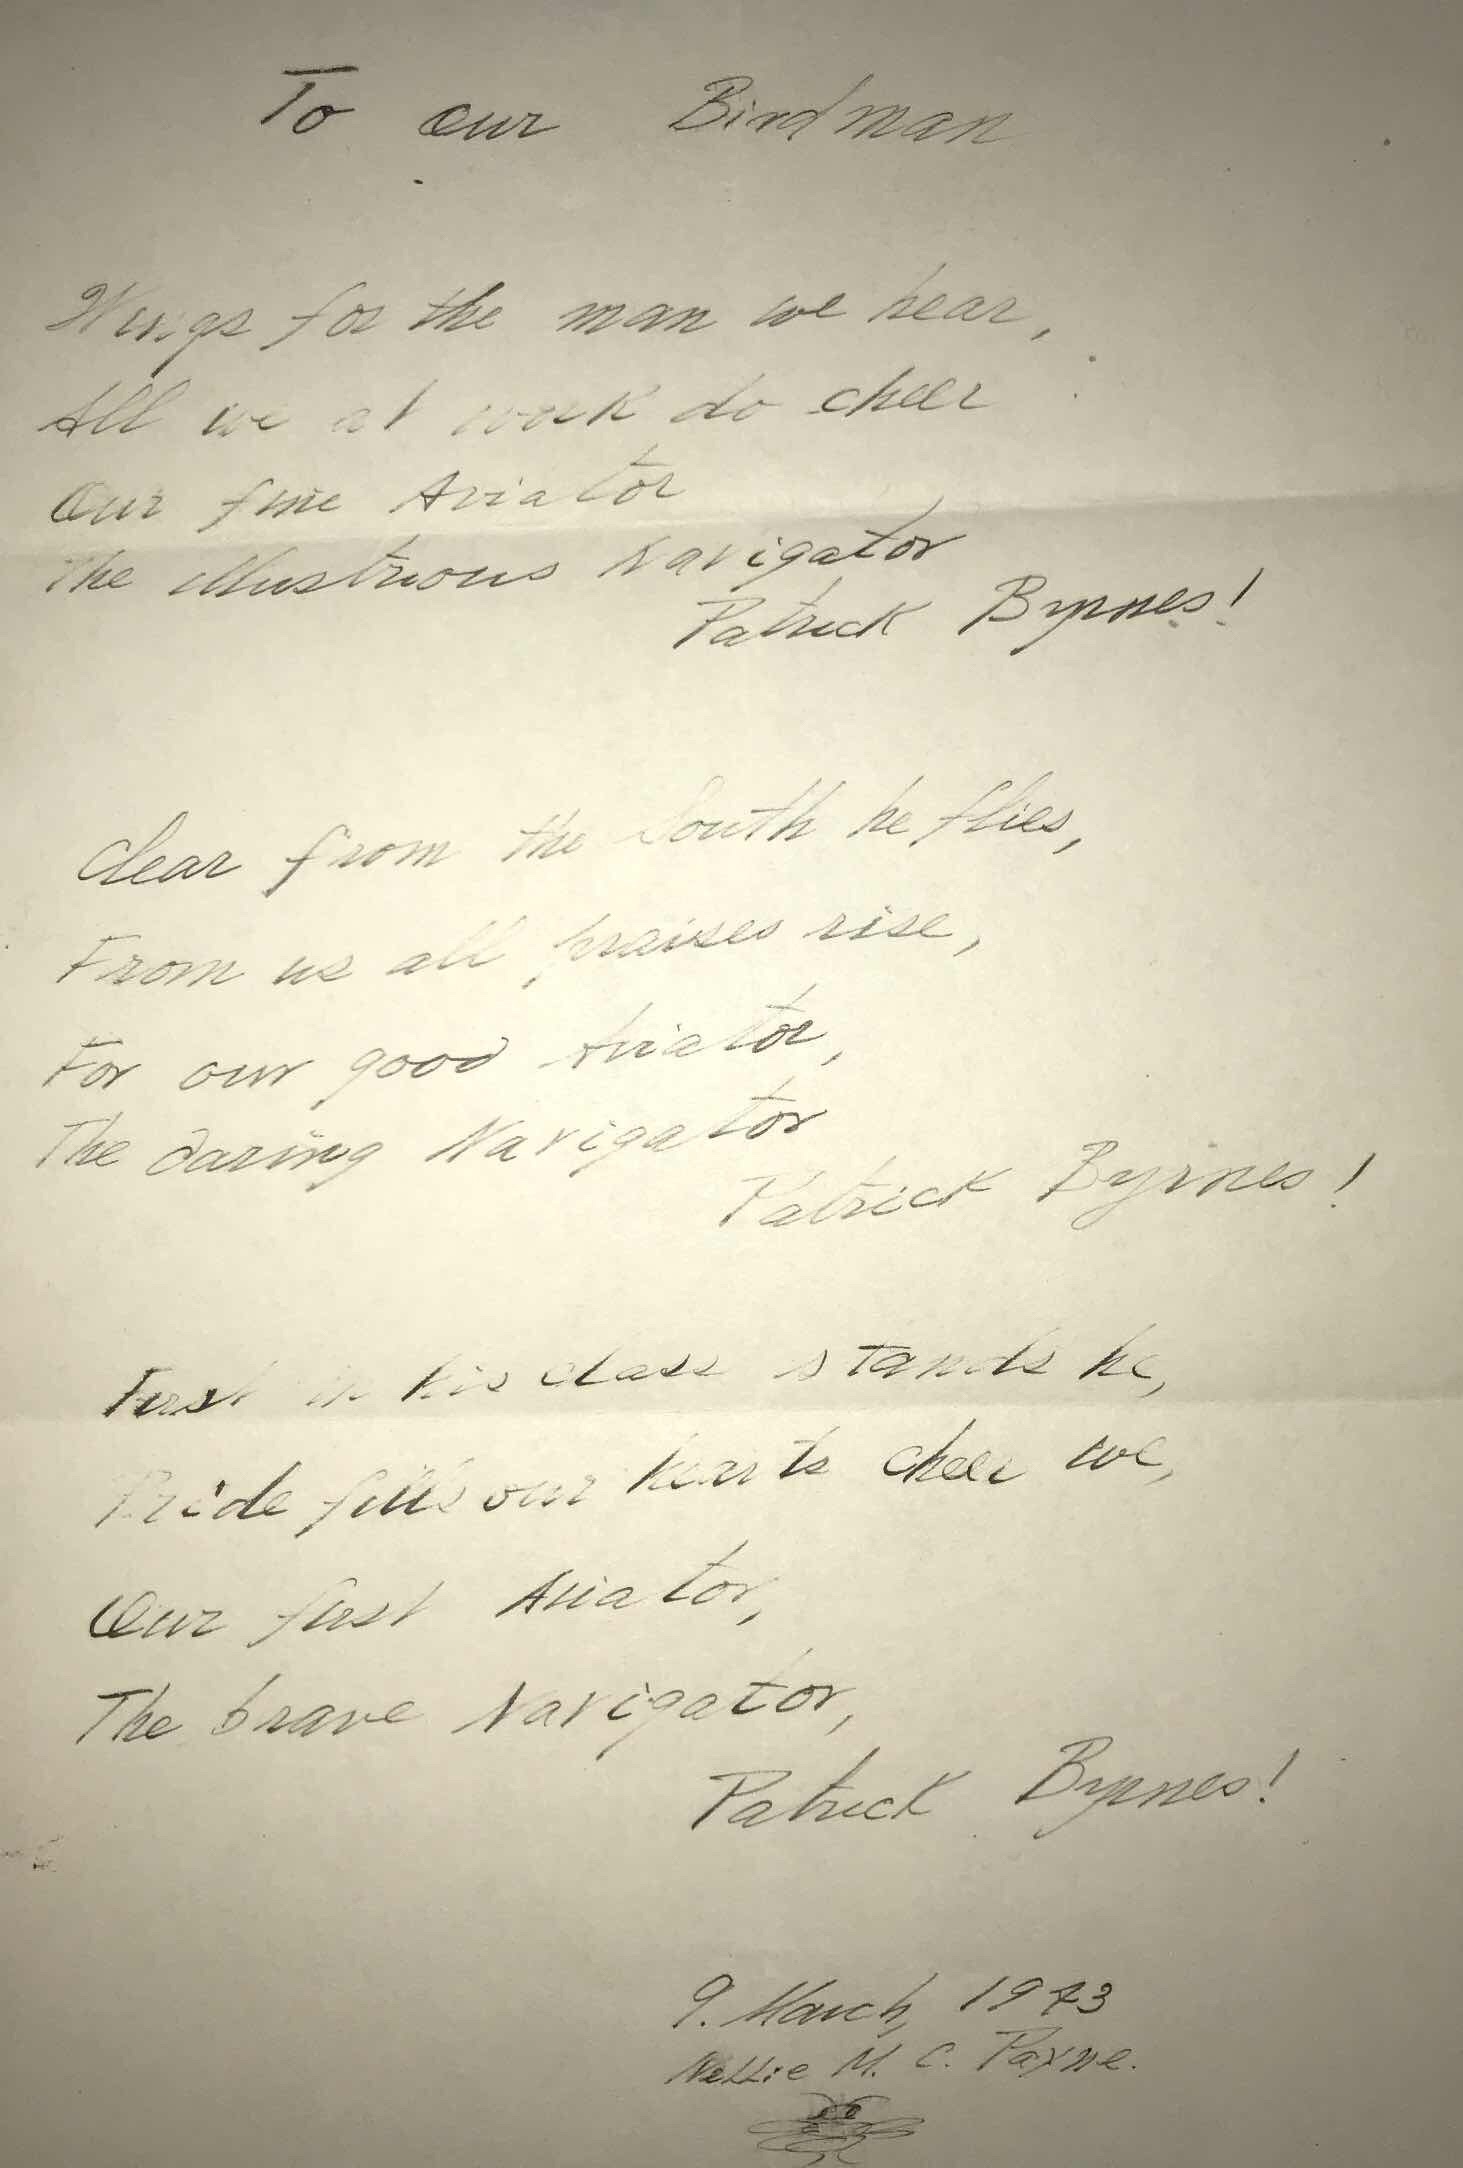 To our Birdman
Wings for the man we hear,
All we at work do cheer
Our fine Aviator
The illustrious Navigator
Patrick Byrnes!
Clear from the South he flies,
From us all, praises rise,
For our good Aviator,
The daring Navigator
Patrick Byrnes!
First in his class stands he,
Pride fills our hearts cheer we,
Our first Aviator,
The brave Navigator,
Patrick Byrnes!
9. March, 1943
Nellie M. C. Payne.